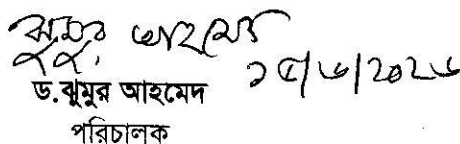 ঝুমুর আহমেদ
১৫/৬/২০২৬
ড.ঝুমুর আহমেদ
পরিচালক